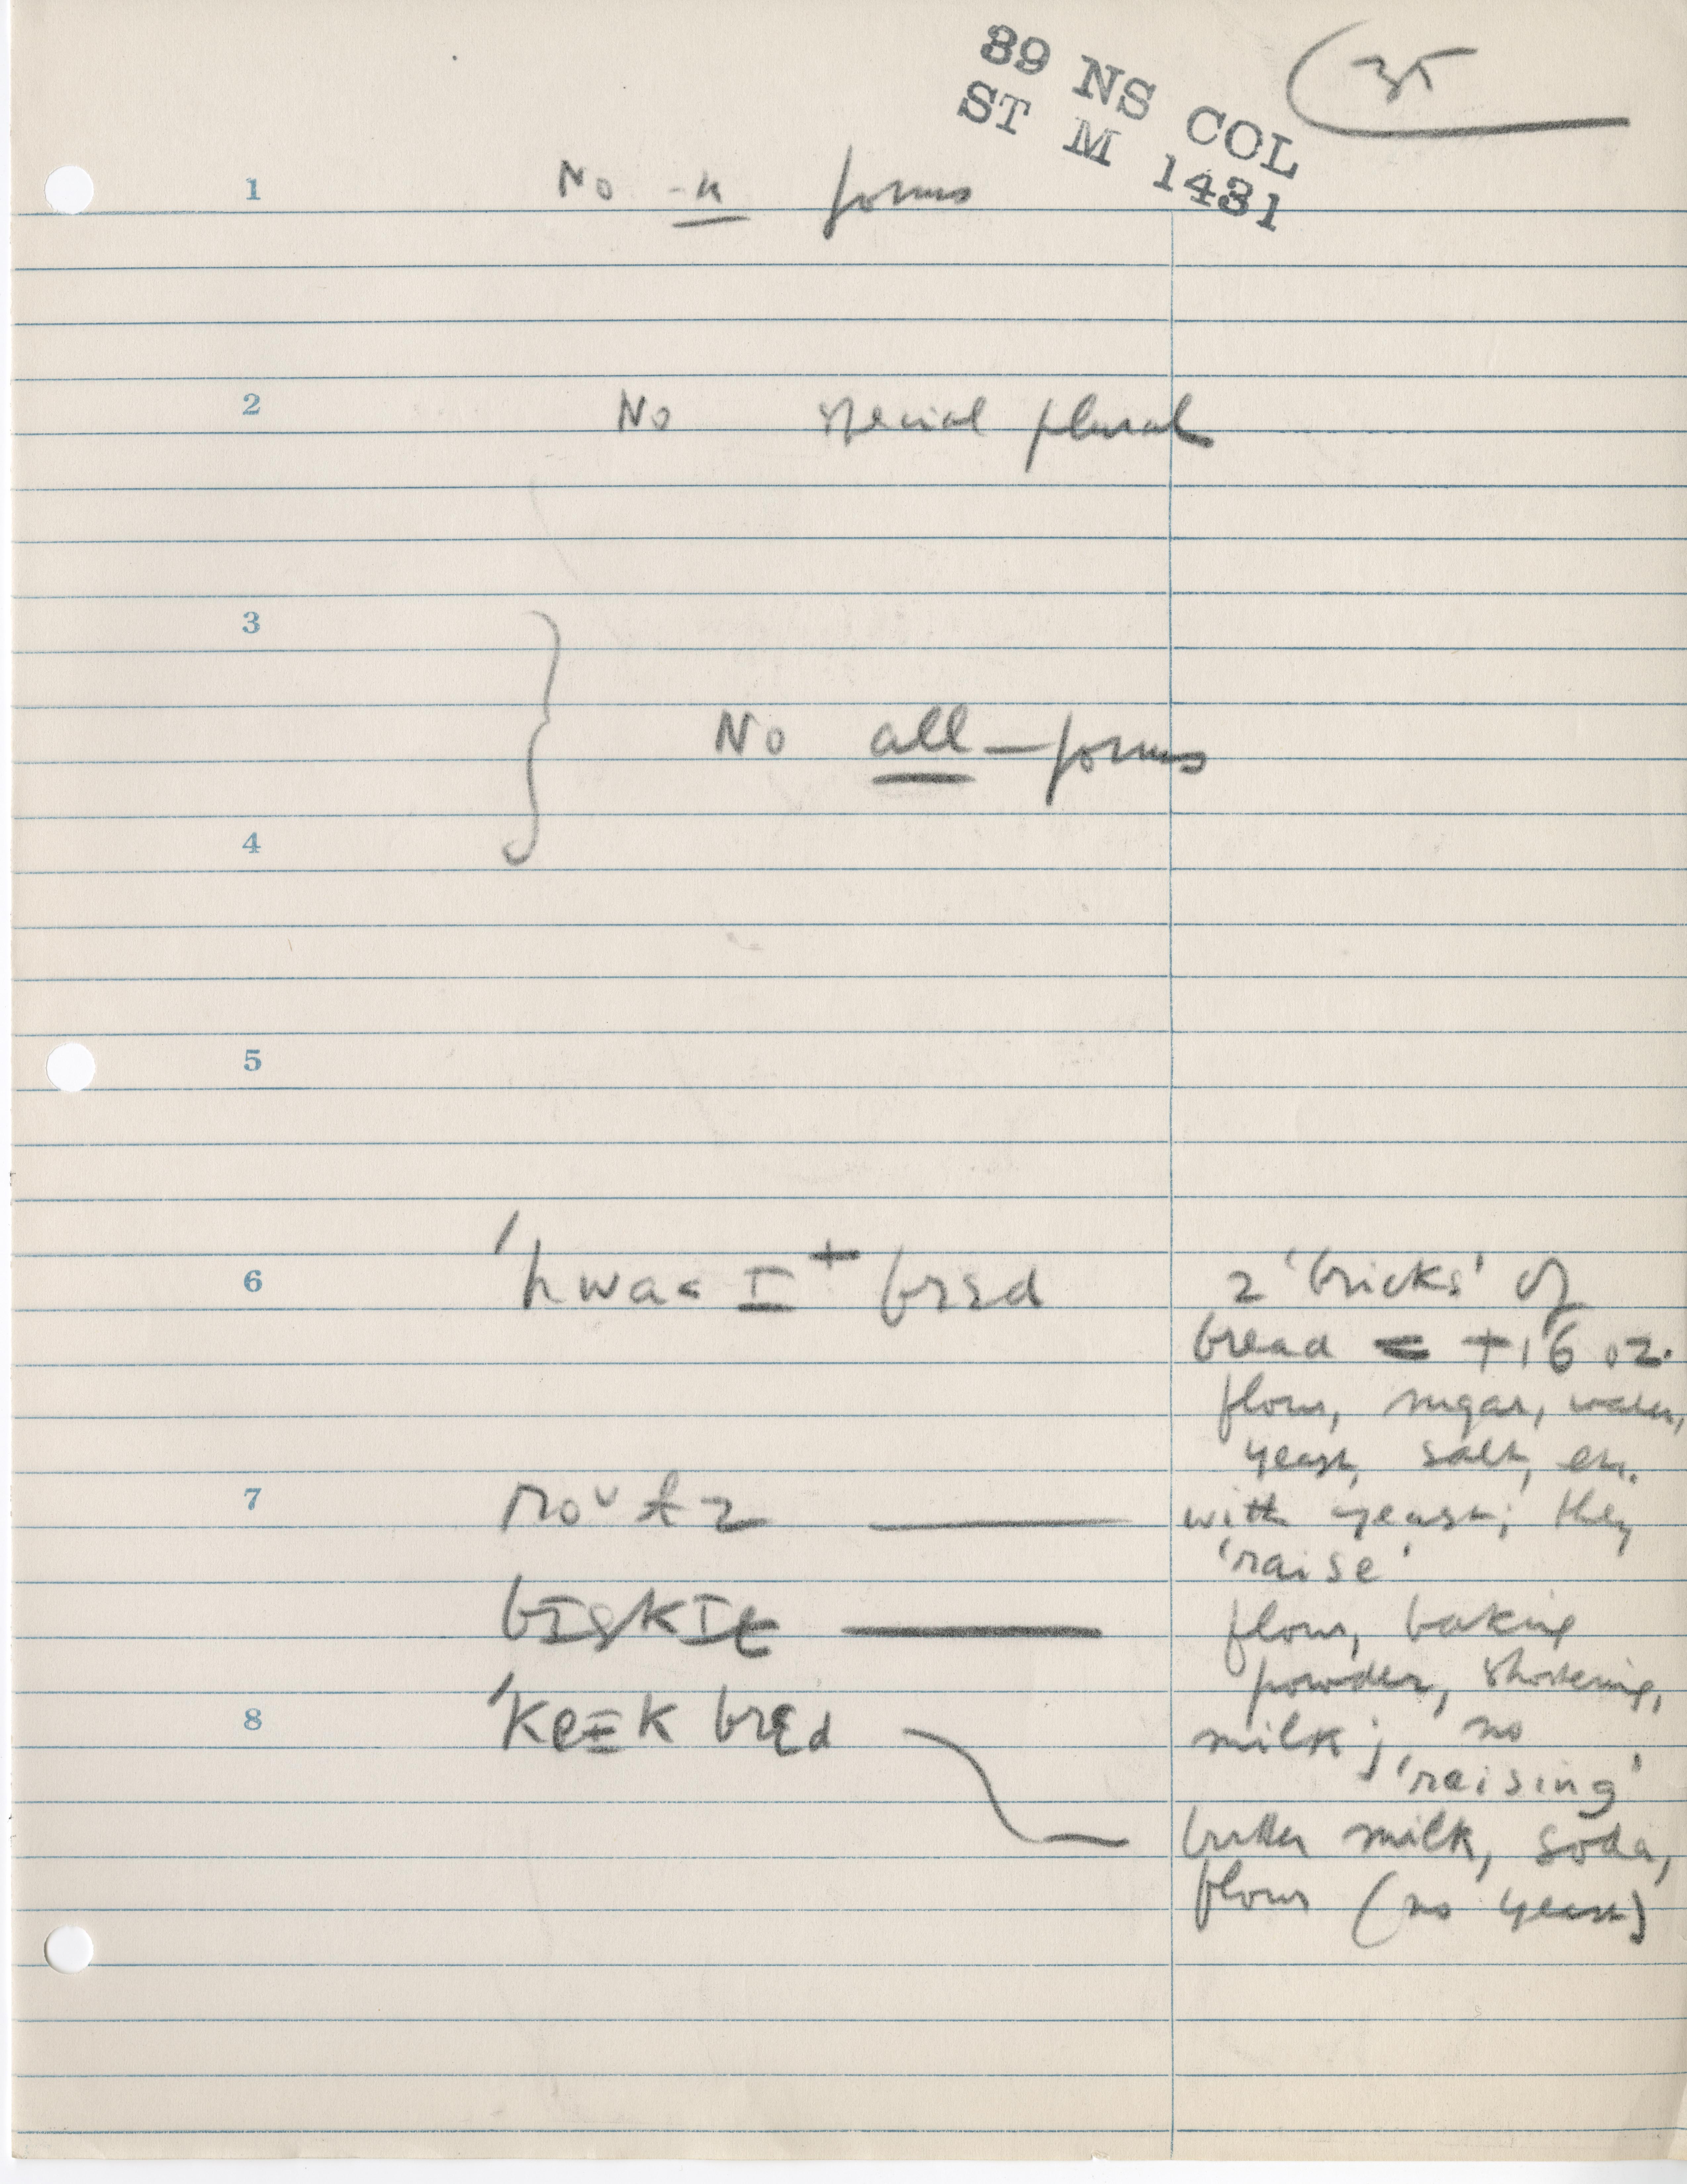 89 NS COL
ST M 1431
35
1 No -n forms
2 No special plural
3
No all-forms
4
5
6 'hwa< I+ brɛd
2 'bricks' of
bread = +16 oz.
flour, sugar, water,
yeast, salt, etc.
7
with yeast; they
'raise'
bɪskɪt
flour, baking
powder, shortening,
8 'keɪk brɛd
milk; no
'raising'
butter milk, soda,
flour (no yeast)